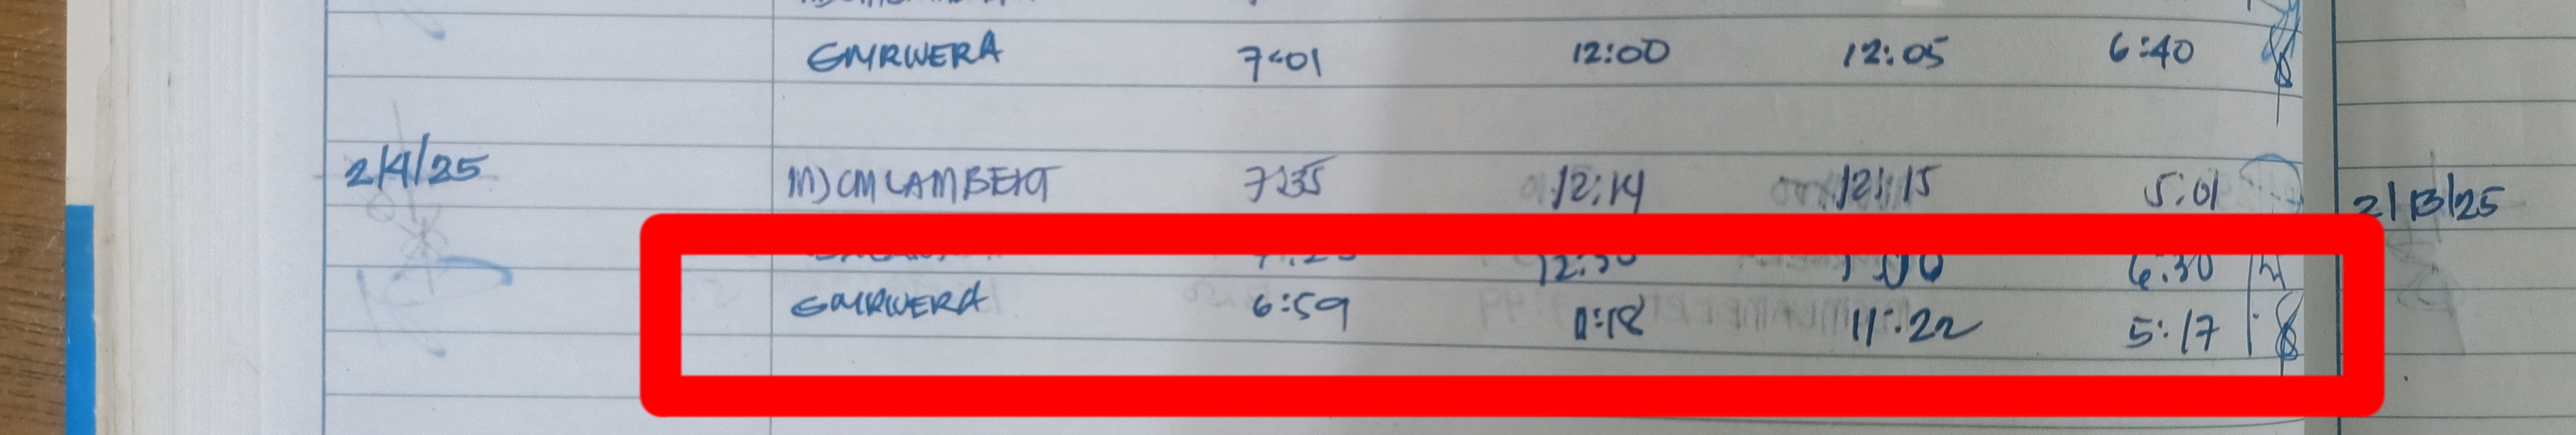 GMRWERA 7:01 12:00 12:05 6:40
2/4/25 MJCMLAMBERT 7:35 12:14 12:15 5:01
2/13/25
12:30 1:00 6:30
GMRWERA 6:59 11:18 11:22 5:17